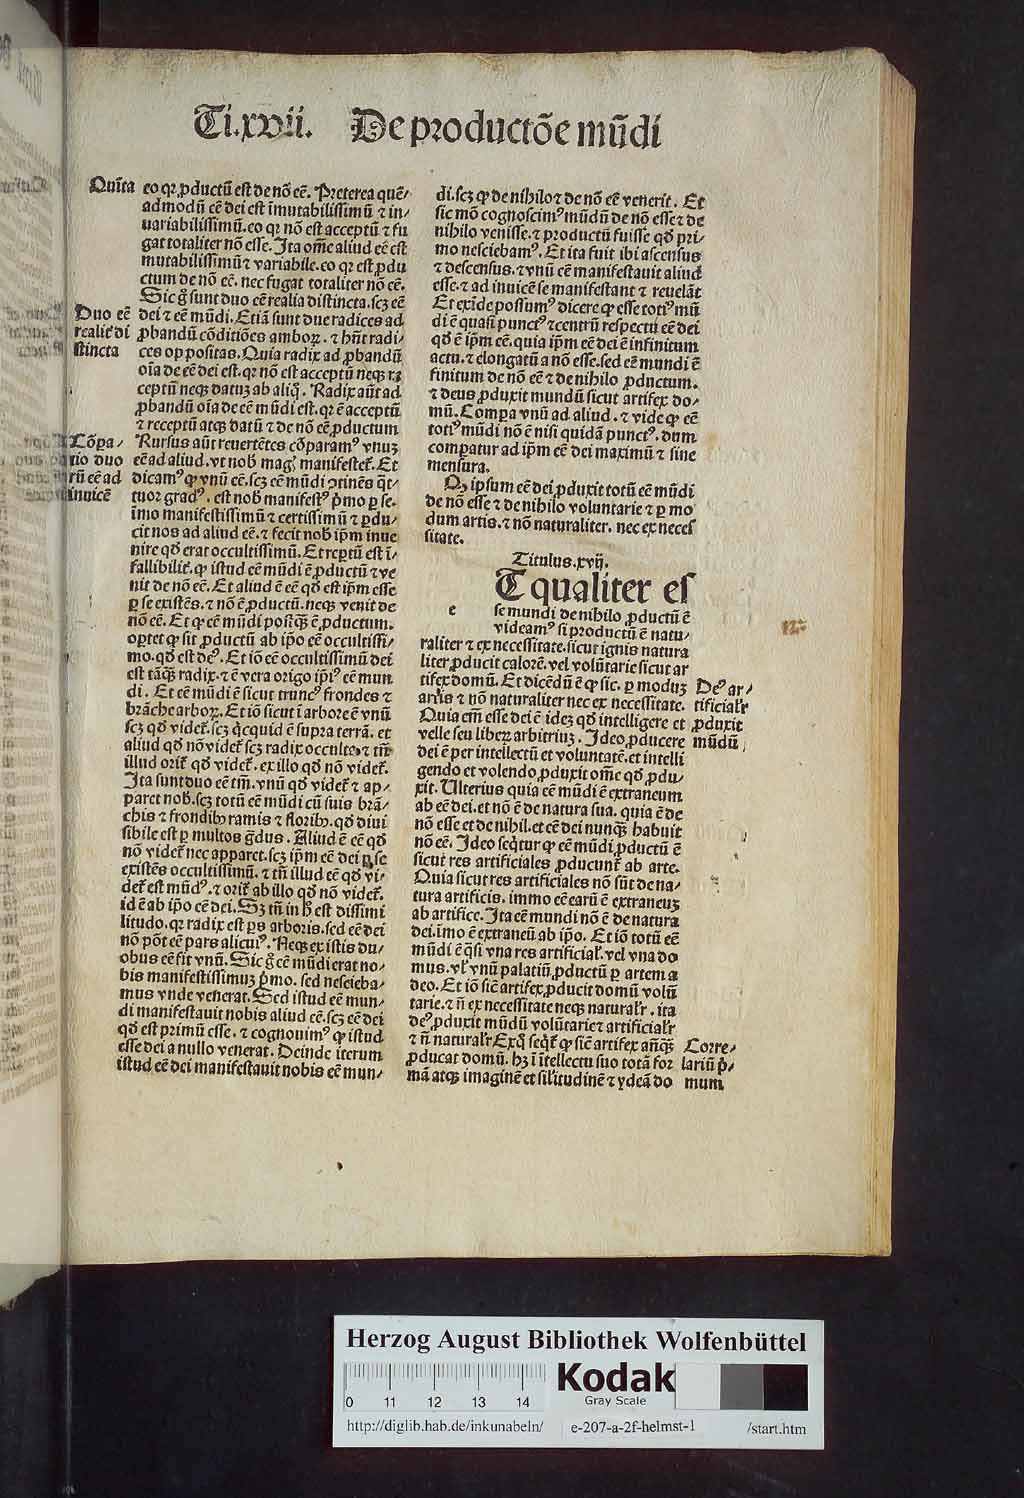 Ti.xvii. De productõe mũdi
Quĩta
eo qꝛ ꝓductũ est de nõ eẽ. Preterea quẽ/
admodũ eẽ dei est ĩmutabilissimũ ⁊ in/
uariabilissimũ. eo qꝛ nõ est acceptũ ⁊ fu
gat totaliter nõ esse. Ita om̃e aliud eẽ est
mutabilissimũ ⁊ variabile. eo qꝛ est ꝓdu
ctum de nõ eẽ. nec fugat totaliter nõ eẽ.
Sic g̃ sunt duo eẽ realia distincta. scꝫ eẽ
Duo eẽ
realit̃ di
stincta
dei ⁊ eẽ mũdi. Etiã sunt due radices ad
ꝓbandũ cõditiões amboꝝ. ⁊ hñt radi/
ces oppositas. Quia radix ad ꝓbandũ
oĩa de eẽ dei est. qꝛ nõ est acceptũ neqꝫ re
ceptũ neqꝫ datuꝫ ab aliq̃. Radix aũt ad
ꝓbandũ oĩa de eẽ mũdi est. qꝛ ẽ acceptũ
⁊ receptũ atqꝫ datũ ⁊ de nõ eẽ ꝓductum
Cõpa/
tio duo
rũ eẽ ad
inuicẽ
Rursus aũt reuertẽtes cõparamꝰ vnuꝫ
eẽ ad aliud. vt nob̃ magꝭ manifestet̃. Et
dicamꝰ ꝙ vnũ eẽ. scꝫ eẽ mũdi ꝯtinẽs q̃t/
tuor gradꝰ. est nob̃ manifestꝰ p̃mo ꝑ se.
ĩmo manifestissimũ ⁊ certissimũ ⁊ ꝑdu/
cit nos ad aliud eẽ. ⁊ fecit nob̃ ip̃m inue
nire qđ erat occultissimũ. Et reꝑtũ est ĩ/
fallibilit̃. ꝙ istud eẽ mũdi ẽ ꝓductũ ⁊ ve
nit de nõ eẽ. Et aliud ẽ eẽ qđ est ip̃m esse
ꝑ se existẽs. ⁊ nõ ẽ ꝓductũ. neqꝫ venit de
nõ eẽ. Et ꝙ eẽ mũdi postq̃ꝫ ẽ ꝓductum.
oꝑtet ꝙ sit ꝓductũ ab ip̃o eẽ occultissi/
mo. qđ est deꝰ. Et iõ eẽ occultissimũ dei
est tãq̃ꝫ radix. ⁊ ẽ vera origo ip̃iꝰ eẽ mun
di. Et eẽ mũdi ẽ sicut truncꝰ frondes ⁊
brãche arboꝝ. Et iõ sicut ĩ arbore ẽ vnũ
scꝫ qđ videt̃. scꝫ q̃cquid ẽ supra terrã. et
aliud qđ nõ videt̃ scꝫ radix occulte. ⁊ tm̃
illud orit̃ qđ videt̃. ex illo qđ nõ videt̃.
Ita sunt duo eẽ tm̃. vnũ qđ videt̃ ⁊ ap/
paret nob̃. scꝫ totũ eẽ mũdi cũ suis brã/
chis ⁊ frondibꝫ ramis ⁊ floribꝫ. qđ diui
sibile est ꝑ multos g̃dus. Aliud ẽ eẽ qđ
nõ videt̃ nec apparet. scꝫ ip̃m eẽ dei ꝑ se
existẽs occultissimũ. ⁊ tm̃ illud eẽ qđ vi/
det̃ est mũdꝰ. ⁊ orit̃ ab illo qđ nõ videt̃.
id ẽ ab ip̃o eẽ dei. Sꝫ tñ in h̃ est dissimi
litudo. qꝛ radix est ꝑs arboris. sed eẽ dei
nõ põt eẽ pars alicuiꝰ. Neqꝫ ex istis du/
obus eẽ fit vnũ. Sic g̃ eẽ mũdi erat no/
bis manifestissimuꝫ p̃mo. sed nescieba/
mus vnde venerat. Sed istud eẽ mun/
di manifestauit nobis aliud eẽ. scꝫ eẽ dei
qđ est primũ esse. ⁊ cognouimꝰ ꝙ istud
esse dei a nullo venerat. Deinde iterum
istud eẽ dei manifestauit nobis eẽ mun/
di. scꝫ ꝙ de nihilo ⁊ de nõ eẽ venerit. Et
sic mõ cognoscimꝰ mũdũ de nõ esse ⁊ de
nihilo venisse. ⁊ productũ fuisse qđ pri/
mo nesciebamꝰ. Et ita fuit ibi ascensus
⁊ descensus. ⁊ vnũ eẽ manifestauit aliud
esse. ⁊ ad inuicẽ se manifestant ⁊ reuelãt
Et exĩde possumꝰ dicere ꝙ esse totiꝰ mũ
di ẽ quasi punctꝰ ⁊ centrũ respectu eẽ dei
qđ ẽ ip̃m eẽ. quia ip̃m eẽ dei ẽ infinitum
actu. ⁊ elongatũ a nõ esse. sed eẽ mundi ẽ
finitum de nõ eẽ ⁊ de nihilo ꝓductum.
⁊ deus ꝓduxit mundũ sicut artifex do/
mũ. Compa vnũ ad aliud. ⁊ vide ꝙ eẽ
totiꝰ mũdi nõ ẽ nisi quidã punctꝰ. dum
comparatur ad ip̃m eẽ dei maximũ ⁊ sine
mensura.
Qꝫ ipsum eẽ dei ꝓduxit totũ eẽ mũdi
de nõ esse ⁊ de nihilo voluntarie ⁊ ꝑ mo
dum artis. ⁊ nõ naturaliter. nec ex neces
sitate.
Titulus. xvij.
e
T qualiter es
se mundi de nihilo ꝓductũ ẽ
videamꝰ si productũ ẽ natu/
raliter ⁊ ex necessitate. sicut ignis natura
liter ꝓducit calorẽ. vel volũtarie sicut ar
tifex domũ. Et dicẽdũ ẽ ꝙ sic. ꝑ moduꝫ
artis ⁊ nõ naturaliter nec ex necessitate.
Deꝰ ar/
tificialr̃
ꝓduxit
mũdũ
Quia em̃ esse dei ẽ ideꝫ qđ intelligere et
velle seu liberꝫ arbitriuꝫ. Ideo ꝓducere
dei ẽ per intellectũ et voluntatẽ. et intelli
gendo et volendo ꝓduxit om̃e qđ ꝓdu/
xit. Ulterius quia eẽ mũdi ẽ extraneum
ab eẽ dei. et nõ ẽ de natura sua. quia ẽ de
nõ esse et de nihil. et eẽ dei nunq̃ꝫ habuit
nõ eẽ. Ideo seq̃tur ꝙ eẽ mũdi ꝓductũ ẽ
sicut res artificiales ꝓducunt̃ ab arte.
Quia sicut res artificiales nõ sũt de na/
tura artificis. immo eẽ earũ ẽ extraneuꝫ
ab artifice. Ita eẽ mundi nõ ẽ de natura
dei. imo ẽ extraneũ ab ip̃o. Et iõ totũ eẽ
mũdi ẽ q̃si vna res artificial̃. vel vna do
mus. vl̃ vnũ palatiũ ꝓductũ ꝑ artem a
deo. Et iõ siẽ artifex ꝓducit domũ volũ
tarie. ⁊ ñ ex necessitate neqꝫ naturalr̃. ita
deꝰ ꝓduxit mũdũ volũtarie ⁊ artificialr̃
⁊ ñ naturalr̃ Exq̃ seq̃t̃ ꝙ siẽ artifex añq̃ꝫ
Corre/
lariũ p̃/
mum
ꝓducat domũ. hꝫ ĩ ĩtellectu suo totã for
mã atqꝫ imaginẽ et sil̃itudinẽ ⁊ ydeã do
Herzog August Bibliothek Wolfenbüttel
0 11 12 13 14
Kodak
Gray Scale
http://diglib.hab.de/inkunabeln/ e-207-a-2f-helmst-1 /start.htm